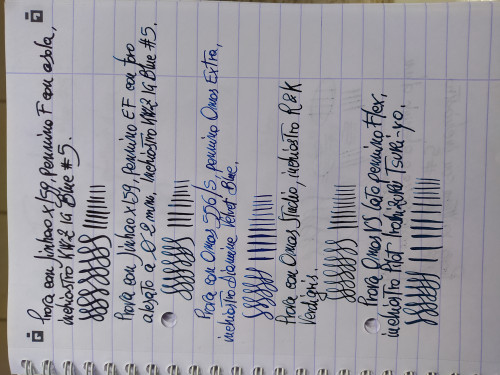 Prova con Jinhao x159, pennino F con asola,
inchiostro KWZ IG Blue #5.
Prova con Jinhao x159, pennino EF con foro
alesato a mm, inchiostro KWZ IG Blue #5.
Prova con Omas 556/S, pennino Omas Extra,
inchiostro Diamine Velvet Blue.
Prova con Omas Studio, inchiostro R&K
Verdigris.
Prova Omas VS lato pennino Flex,
inchiostro Pilot Iroshizuku Tsuki-yo.